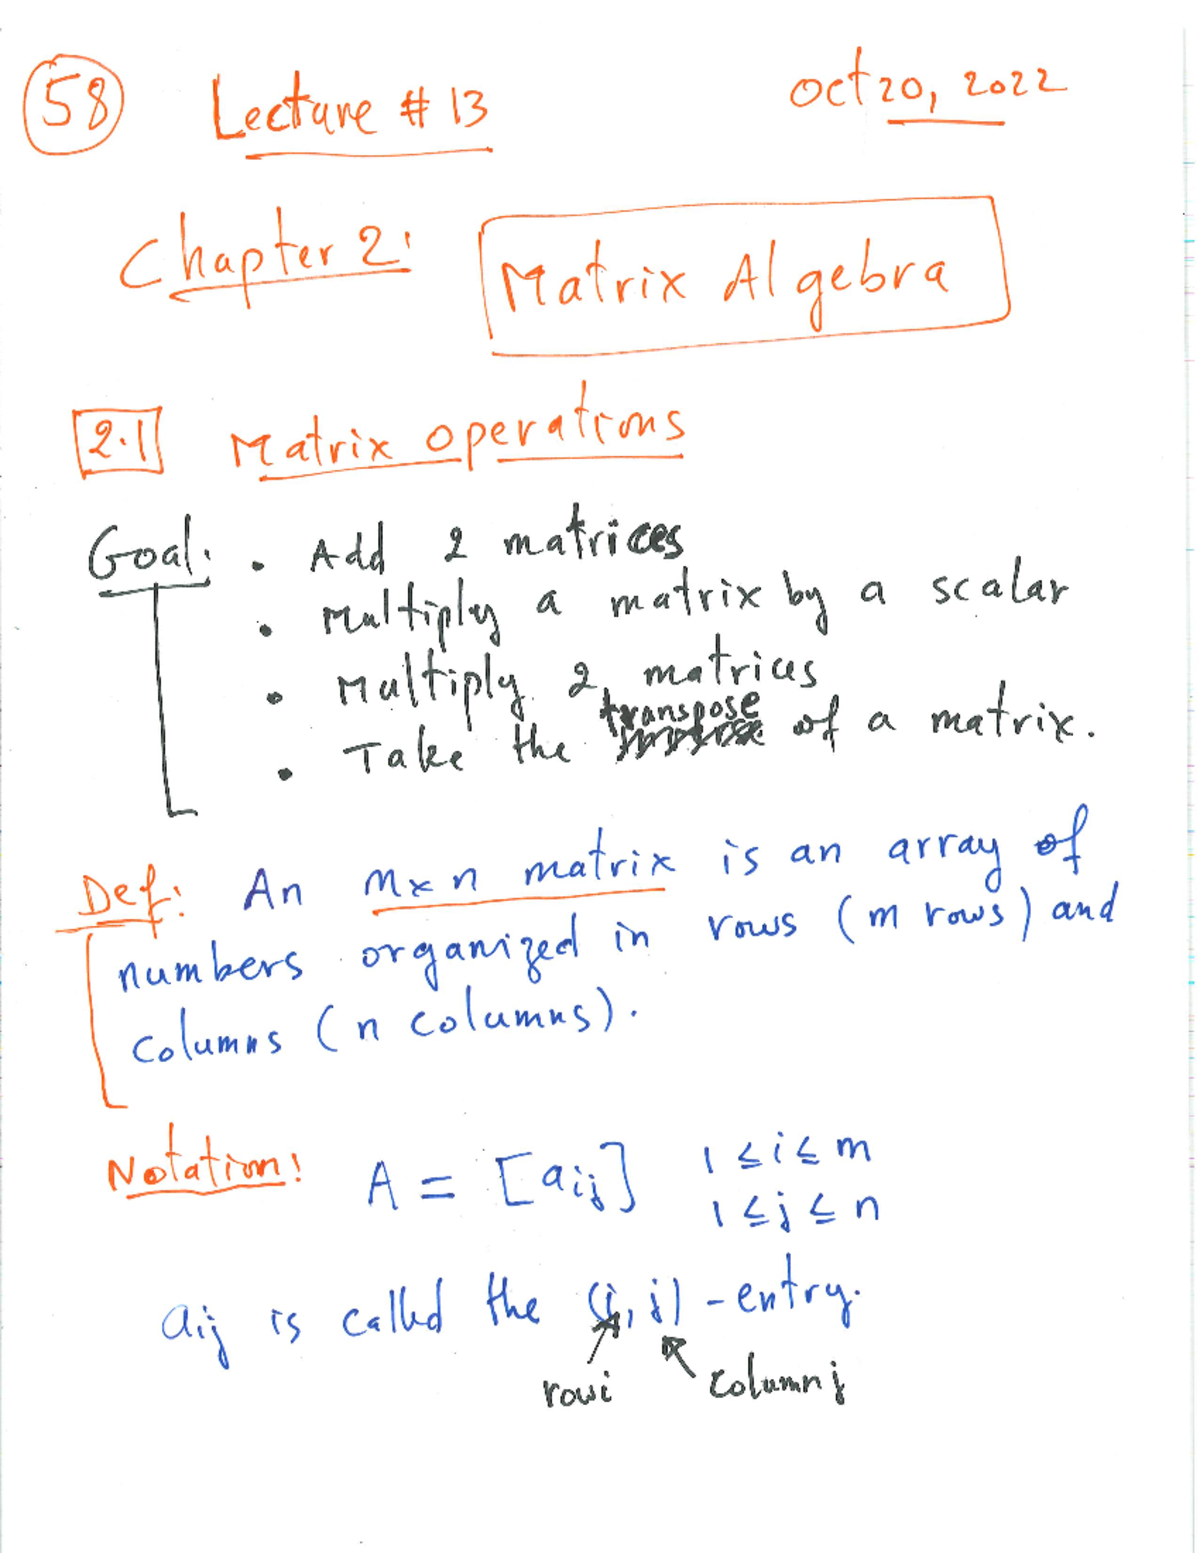 58 Lecture # 13 oct 20, 2022
Chapter 2: Matrix Algebra
2.1 Matrix operations
Goal: • Add 2 matrices
• Multiply a matrix by a scalar
• Multiply 2 matrices
• Take the transpose of a matrix.
Def: An m×n matrix is an array of
numbers organized in rows (m rows) and
columns (n columns).
Notation: A = [aij] 1 ≤ i ≤ m
1 ≤ j ≤ n
aij is called the (i, j) - entry.
row i column j